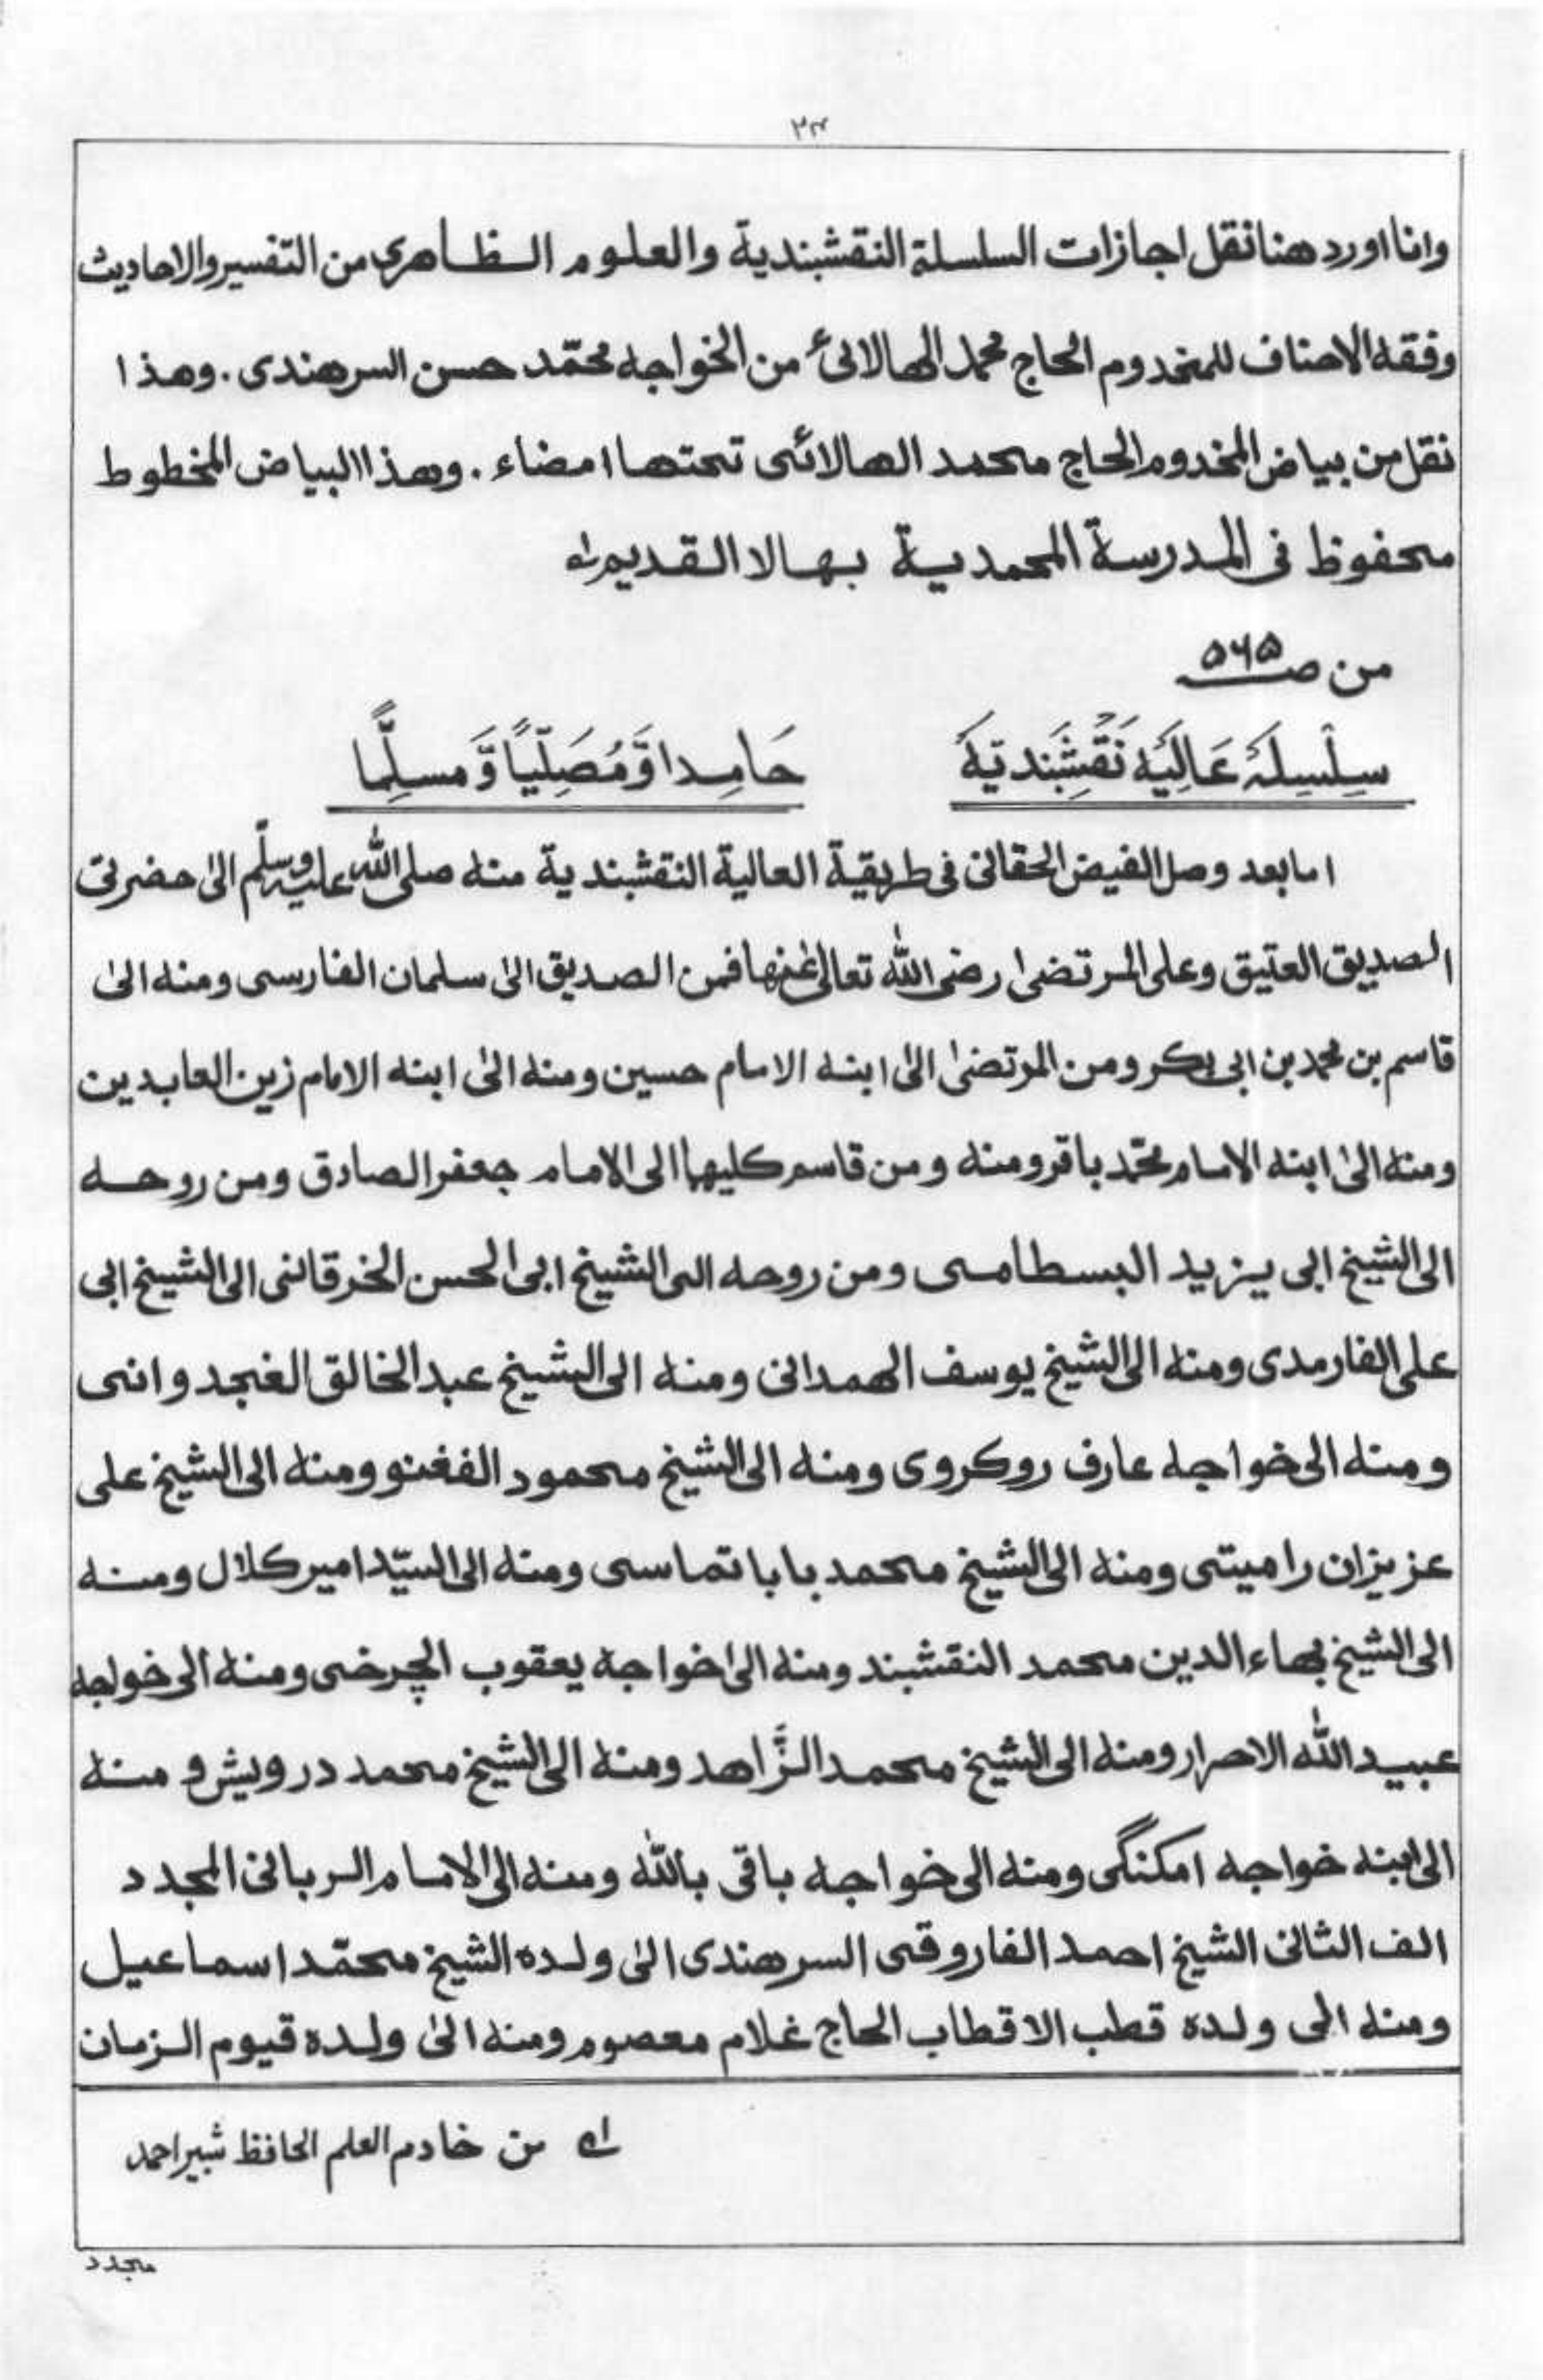 ۳۴
وانا اورد هنا نقل اجازات السلسلة النقشبندية والعلوم الظاهري من التّفسير والاحاديث
وفقه الاصناف للمخدوم الحاج محمد الهالائیؒ من الخواجه محمّد حسن السرهندی . وهذا
نقل من بياض المخدوم الحاج محمد الهالائی تحتها امضاء . وهذا البياض المخطوط
محفوظ فی المدرسة المحمدية بهالا القديم لہ
من صـ ۵۶۵
سِلْسِلَۂ عَالِيَه نَقْشَبَنديَه حَامِدا وَّمُصَلِّيًا وَّمسلِّمًا
اما بعد وصل الفيض الحقانی فی طريقية العالية النقشبندية منه صلی الله عليه وسلّم الیٰ حضرتی
الصديق العتيق وعلی المرتضیٰ رضی الله تعالیٰ عنهما فمن الصديق الیٰ سلمان الفارسی ومنه الیٰ
قاسم بن محمد بن ابی بكر ومن المرتضیٰ الیٰ ابنه الامام حسين ومنه الیٰ ابنه الامام زين العابدين
ومنه الیٰ ابنه الامام محمّد باقر ومنه ومن قاسم كليهما الی الامام جعفر الصادق ومن روحه
الی الشيخ ابی يزيد البسطامی ومن روحه الی الشيخ ابی الحسن الخرقانی الی الشيخ ابی
علی الفارمدی ومنه الی الشيخ يوسف الهمدانی ومنه الی الشيخ عبد الخالق الغجدوانی
ومنه الی خواجه عارف روكروی ومنه الی الشيخ محمود الفغنو ومنه الی الشيخ علی
عزيزان راميتی ومنه الی الشيخ محمد بابا تماسی ومنه الی السيّد امير كلال ومنه
الی الشيخ بهاء الدين محمد النقشبند ومنه الیٰ خواجه يعقوب الچرخی ومنه الی خواجه
عبيد الله الاحرار ومنه الی الشيخ محمد الزَّاهد ومنه الی الشيخ محمد درويش و منه
الی ابنه خواجه امكنگی ومنه الی خواجه باقی بالله ومنه الی الامام الربانی المجدد
الف الثانی الشيخ احمد الفاروقی السرهندی الیٰ ولده الشيخ محمّد اسماعيل
ومنه الی ولده قطب الاقطاب الحاج غلام معصوم ومنه الیٰ ولده قيوم الزمان
لہ من خادم العلم الحافظ شبير احمد
مجدد